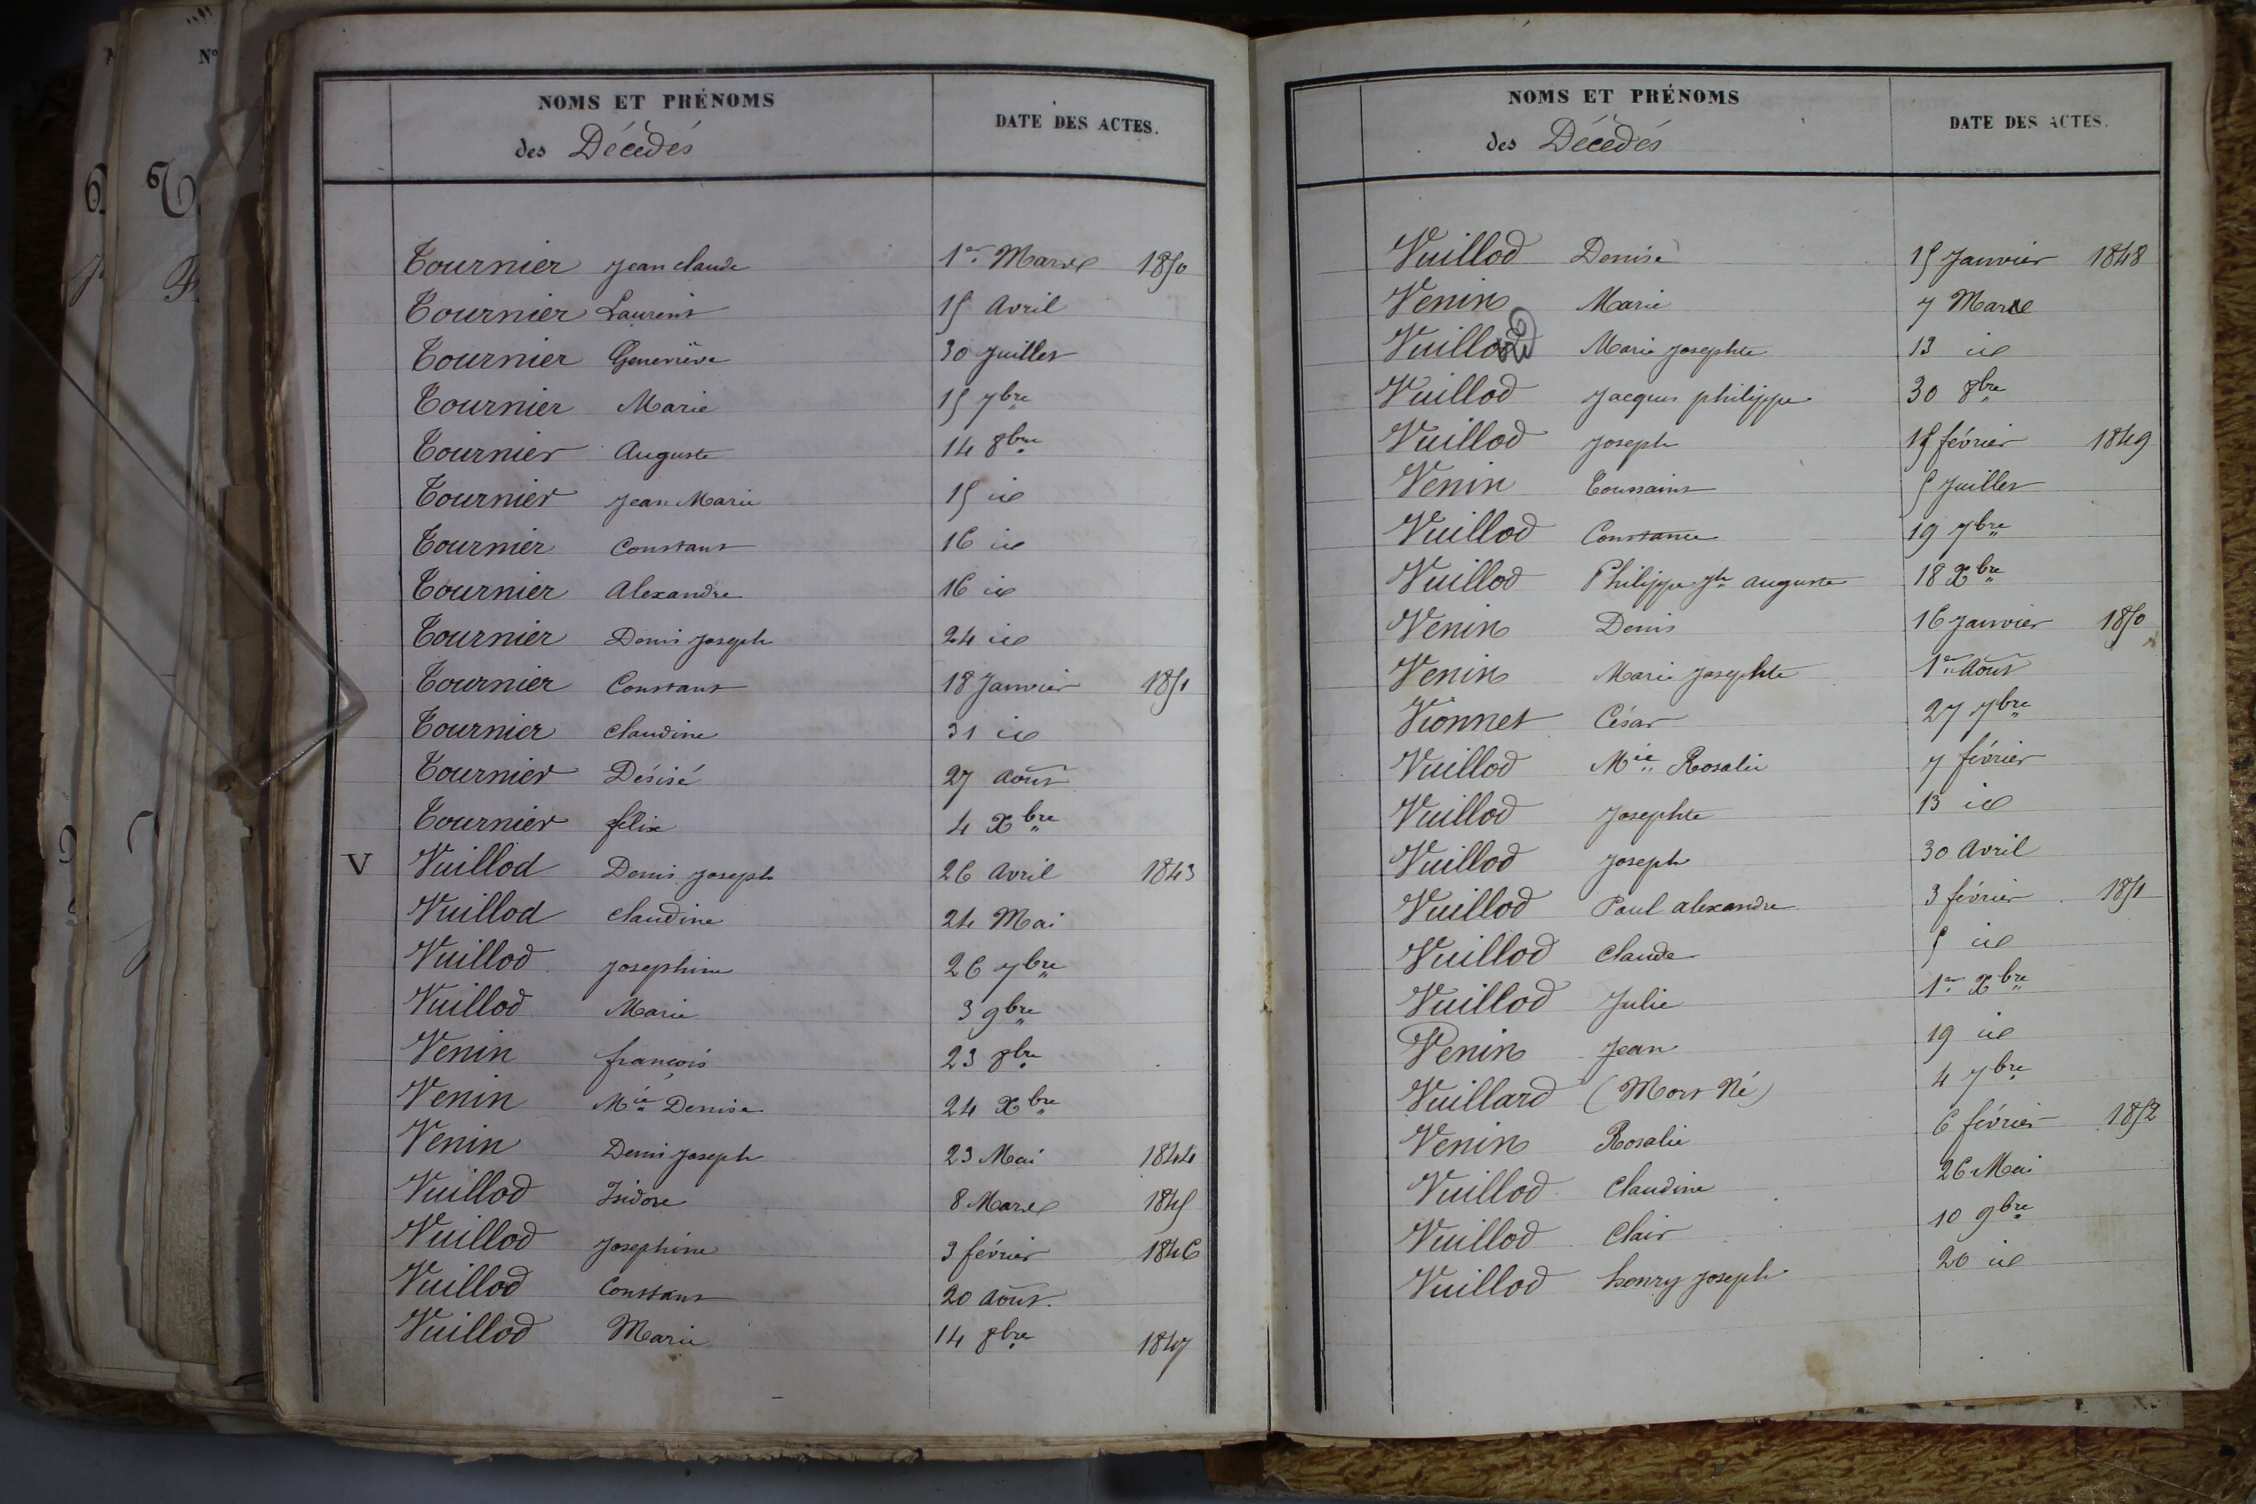 NOMS ET PRÉNOMS
des Décédés
DATE DES ACTES.
Tournier Jean claude 1er Mars 1850
Tournier Laurent 15 Avril
Tournier Geneviève 30 Juillet
Tournier Marie 15 7bre
Tournier Auguste 14 8bre
Tournier Jean Marie 15 id
Tournier Constant 16 id
Tournier Alexandre 16 id
Tournier Denis Joseph 24 id
Tournier Constant 18 Janvier 1851
Tournier Claudine 31 id
Tournier Désiré 27 Août
Tournier félix 4 Xbre
V Vuillod Denis Joseph 26 Avril 1843
Vuillod Claudine 24 Mai
Vuillod Josephine 26 7bre
Vuillod Marie 3 9bre
Venin françois 23 8bre
Venin Mie Denise 24 Xbre
Venin Denis Joseph 23 Mai 1844
Vuillod Isidore 8 Mars 1845
Vuillod Josephine 3 février 1846
Vuillod Constant 20 Août
Vuillod Marie 14 8bre 1847
NOMS ET PRÉNOMS
des Décédés
DATE DES ACTES.
Vuillod Denise 15 Janvier 1848
Venin Marie 7 Mars
Vuillod Marie Josephte 13 id
Vuillod Jacques philippe 30 8bre
Vuillod Joseph 15 février 1849
Venin Toussaint 5 Juillet
Vuillod Constance 19 7bre
Vuillod Philippe Jh auguste 18 Xbre
Venin Denis 16 Janvier 1850
Venin Marie Josephte 1er Août
Vionnet César 27 7bre
Vuillod Mie Rosalie 7 février
Vuillod Josephte 13 id
Vuillod Joseph 30 Avril
Vuillod Paul alexandre 3 février 1851
Vuillod Claude 5 id
Vuillod Julie 1er Xbre
Venin Jean 19 id
Vuillard (Mort Né) 4 7bre
Venin Rosalie 6 février 1852
Vuillod Claudine 26 Mai
Vuillod Clair 10 9bre
Vuillod henry Joseph 20 id